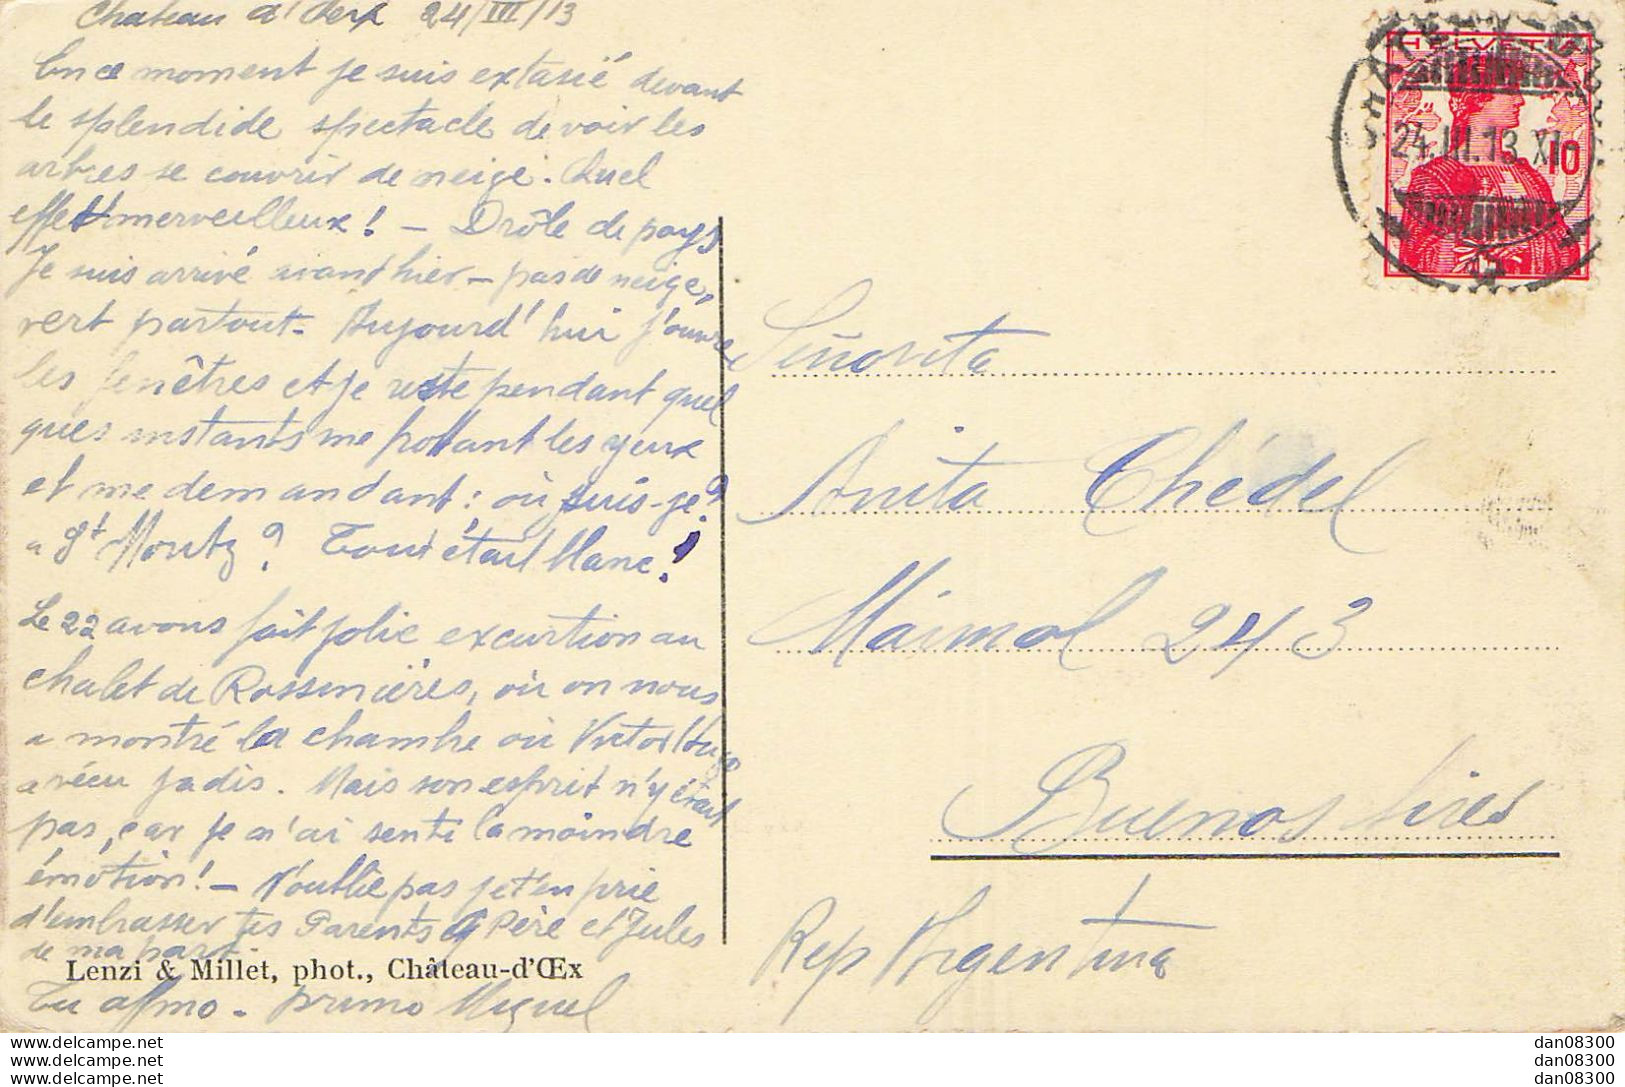 Chateau d'Oex 24/III/13
En ce moment je suis extasié devant
le splendide spectacle de voir les
arbres se couvrir de neige. Quel
effet merveilleux! — Drôle de pays
Je suis arrivé avant hier — pas de neige,
vert partout. Aujourd'hui j'ouvre
les fenêtres et je reste pendant quel
ques instants me frottant les yeux
et me demandant: où suis-je?
a St Moritz? Tout était blanc!
Le 22 avons fait jolie excurtion au
chalet de Rossinières, où on nous
a montré la chambre où Victor Hugo
a vécu jadis. Mais son esprit n'y était
pas, car je n'ai senti la moindre
émotion! — N'oublie pas je t'en prie
d'embrasser tes Parents Père et Jules
de ma part.
Lenzi & Millet, phot., Château-d'Œx
Tu afmo. primo Miguel
HELVETIA
24.III.13.XI
10
Señorita
Anita Chédel
Maimol 243
Buenos Aires
Rep Argentina
www.delcampe.net
www.delcampe.net
www.delcampe.net
dan08300
dan08300
dan08300